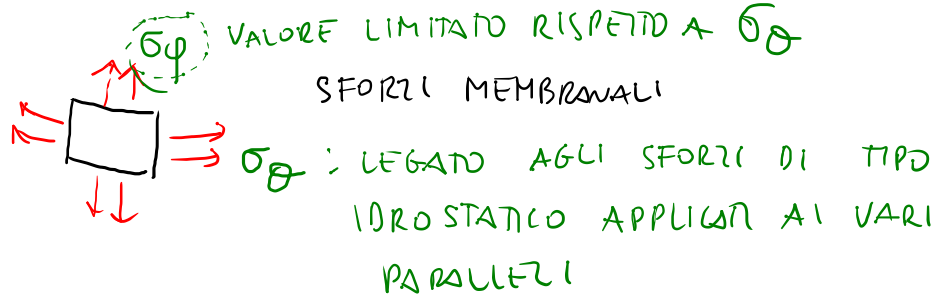 σφ VALORE LIMITATO RISPETTO A σθ
SFORZI MEMBRANALI
σθ : LEGATO AGLI SFORZI DI TIPO
IDROSTATICO APPLICATI AI VARI
PARALLELI